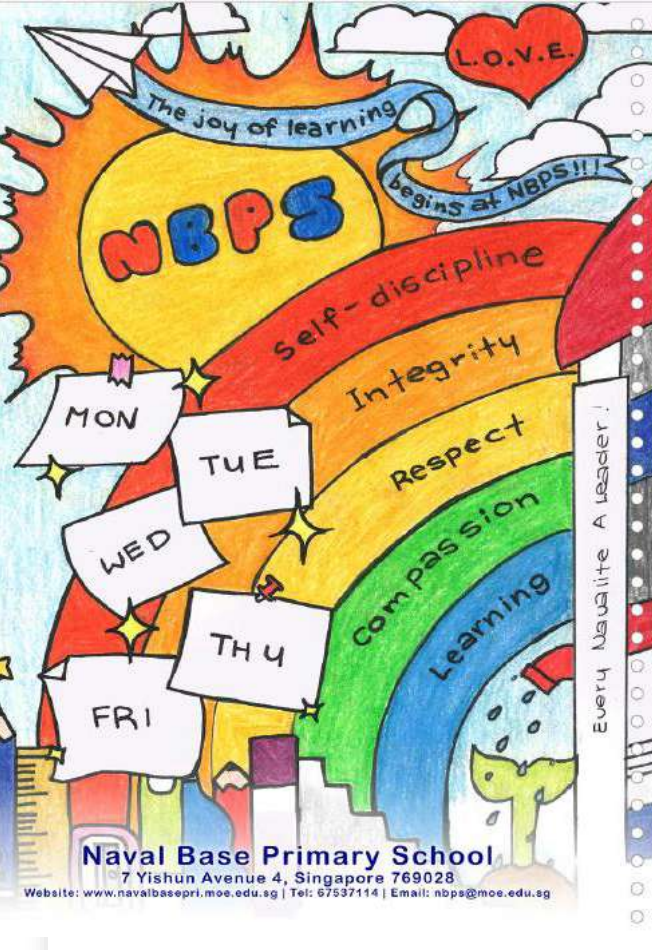 L.O.V.E.
The joy of learning
begins at NBPS!!!
NBPS
Self-discipline
Integrity
Respect
Compassion
Learning
MON
TUE
WED
THU
FRI
Every Navalite A Leader!
Naval Base Primary School
7 Yishun Avenue 4, Singapore 769028
Website: www.navalbasepri.moe.edu.sg | Tel: 67537114 | Email: nbps@moe.edu.sg